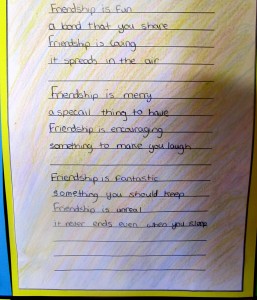 Friendship is fun
a bond that you share
Friendship is loving
it spreads in the air
Friendship is merry
a specail thing to have
Friendship is encouraging
something to make you laugh
Friendship is fantastic
something you should keep
Friendship is unreal
it never ends even when you sleep